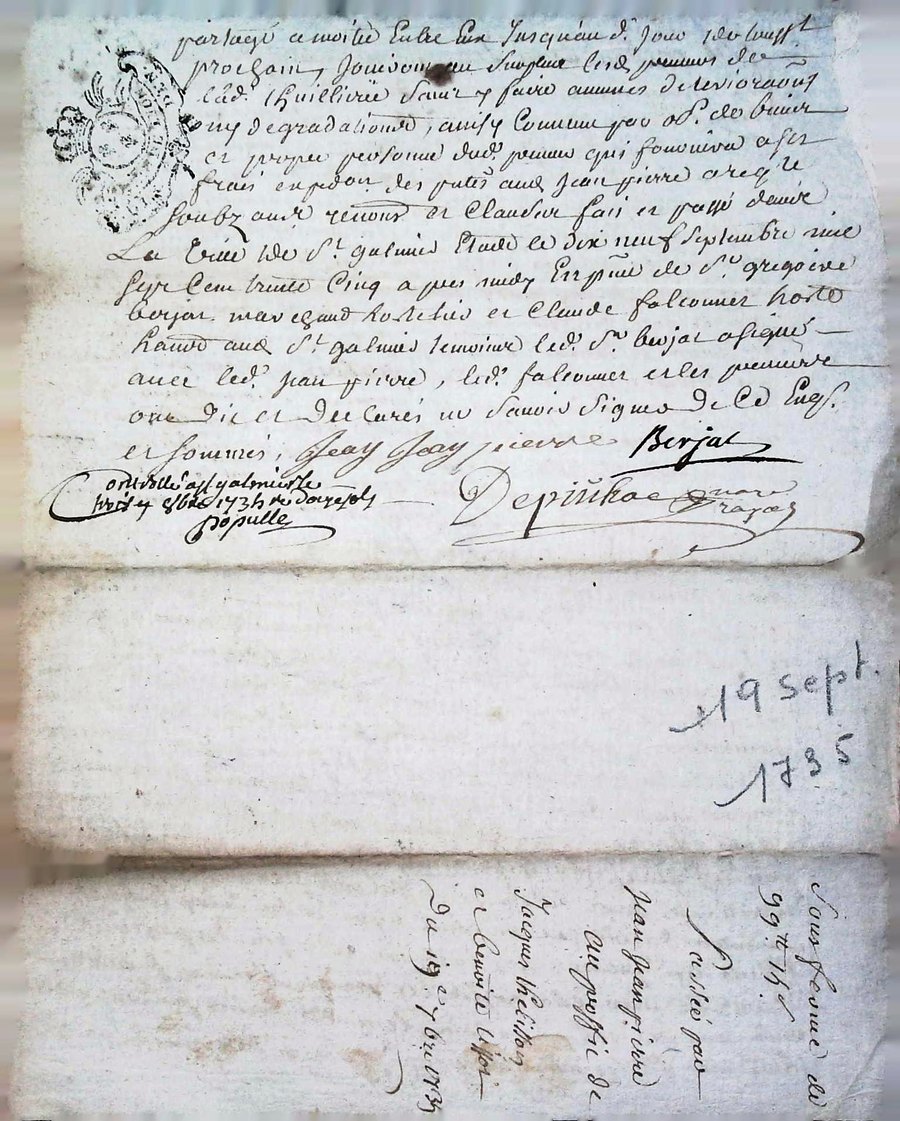 partagé a moitié Entre Eux Jusquau dt. jour de touss.t
prochain, Jouiront au surplus lesd. preneurs de
lad. thuilliere sans y faire aucunes deteriorations
ny degradations, ainsy Convenu par obl. de biens
et propre personne dud. preneur qui fournira a ses
frais expedon. des putes aud. Jean pierre avec
soubz autr. renons. et Clauses fait et passé dans
La Ville de St. galmier Etude le dix neuf septembre mil
sept Cent trente Cinq apres midy En pnce de Sr. gregoire
berjat marchand hostelier et Claude falconnet hoste
hants aud. St. galmier temoins led. Sr. berjat a signé
avec led. Jean pierre, led. falconnet et les preneurs
ont dit et declarés ne savoir signer de Ce Enqs.
et sommés, Jean Jean pierre Berjat
Controllé a st galmier le
1735
populle
Depiuhac
19 sept.
1735
Sous ferme de
99tt 15s
Passée par
Jean Jean pierre
Au proffit de
Jacques thelisson
et benoite
Du 19e 7bre 1735